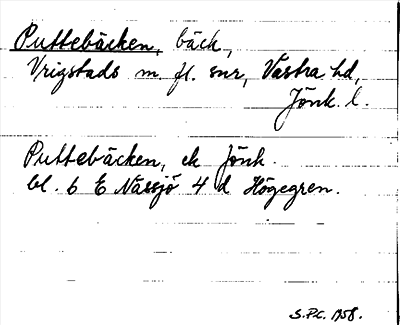 Puttebäcken, bäck,
Vrigstads m. fl. snr, Västra hd,
Jönk. l.
Puttebäcken, ek Jönk.
bl. 6 E Nässjö 4 d Högegren.
S.P.C. 1958.